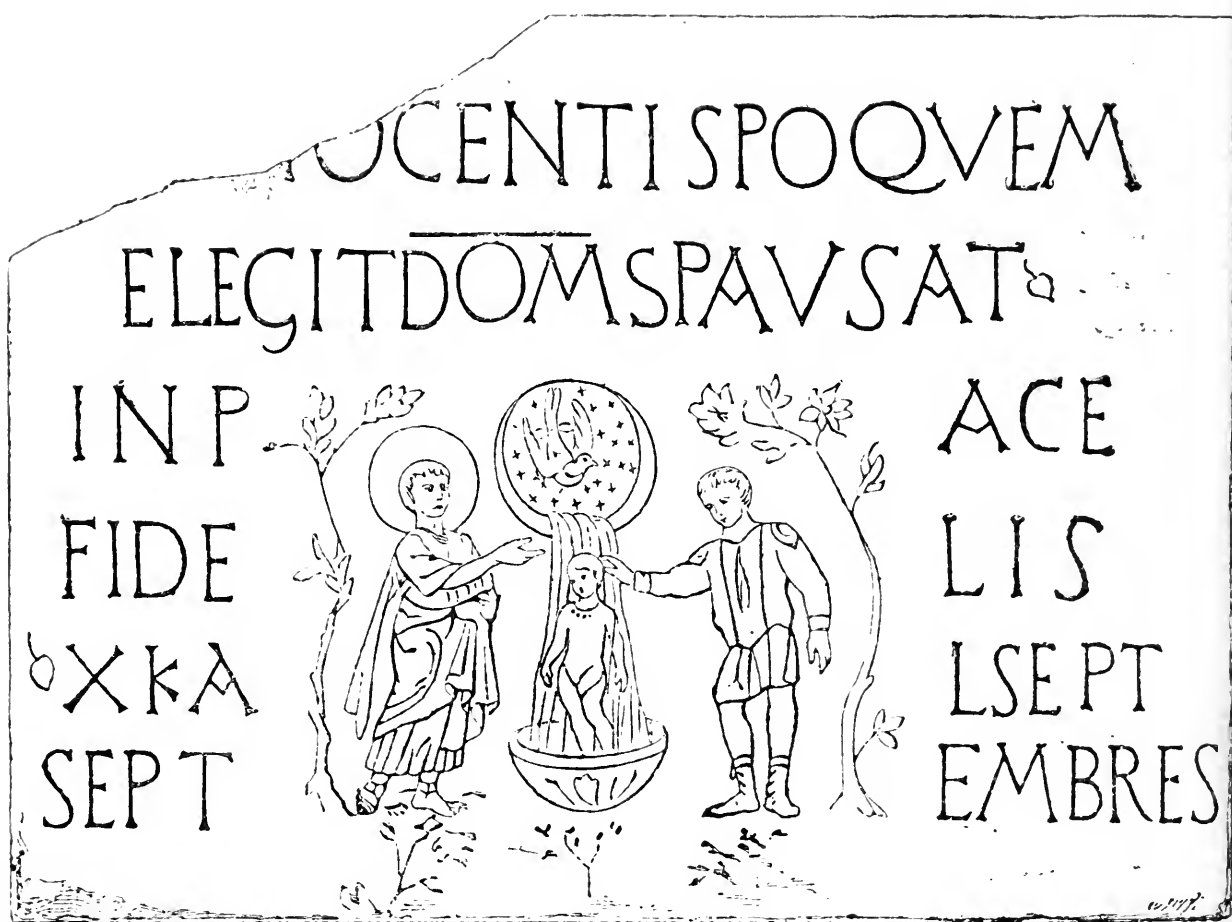 OCENTI SPOQVEM
ELEGITDOMSPAVSAT
INP ACE
FIDE LIS
XKA LSEPT
SEPT EMBRES